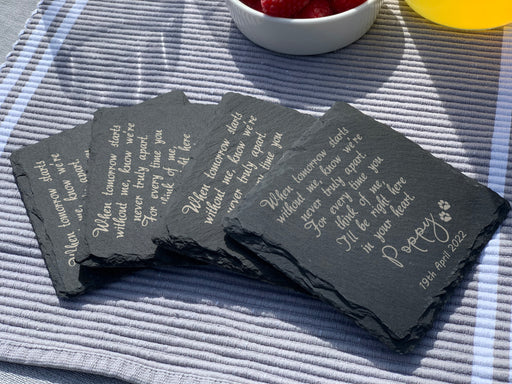 When tomorrow starts
without me, know we're
never truly apart.
For every time you
When tomorrow starts
without me, know we're
never truly apart.
For every time you
think of me,
right here
When tomorrow starts
without me, know we're
never truly apart.
For every time you
think of me,
right here
When tomorrow starts
without me, know we're
never truly apart.
For every time you
think of me,
I'll be right here
in your heart.
Poppy
19th April 2022